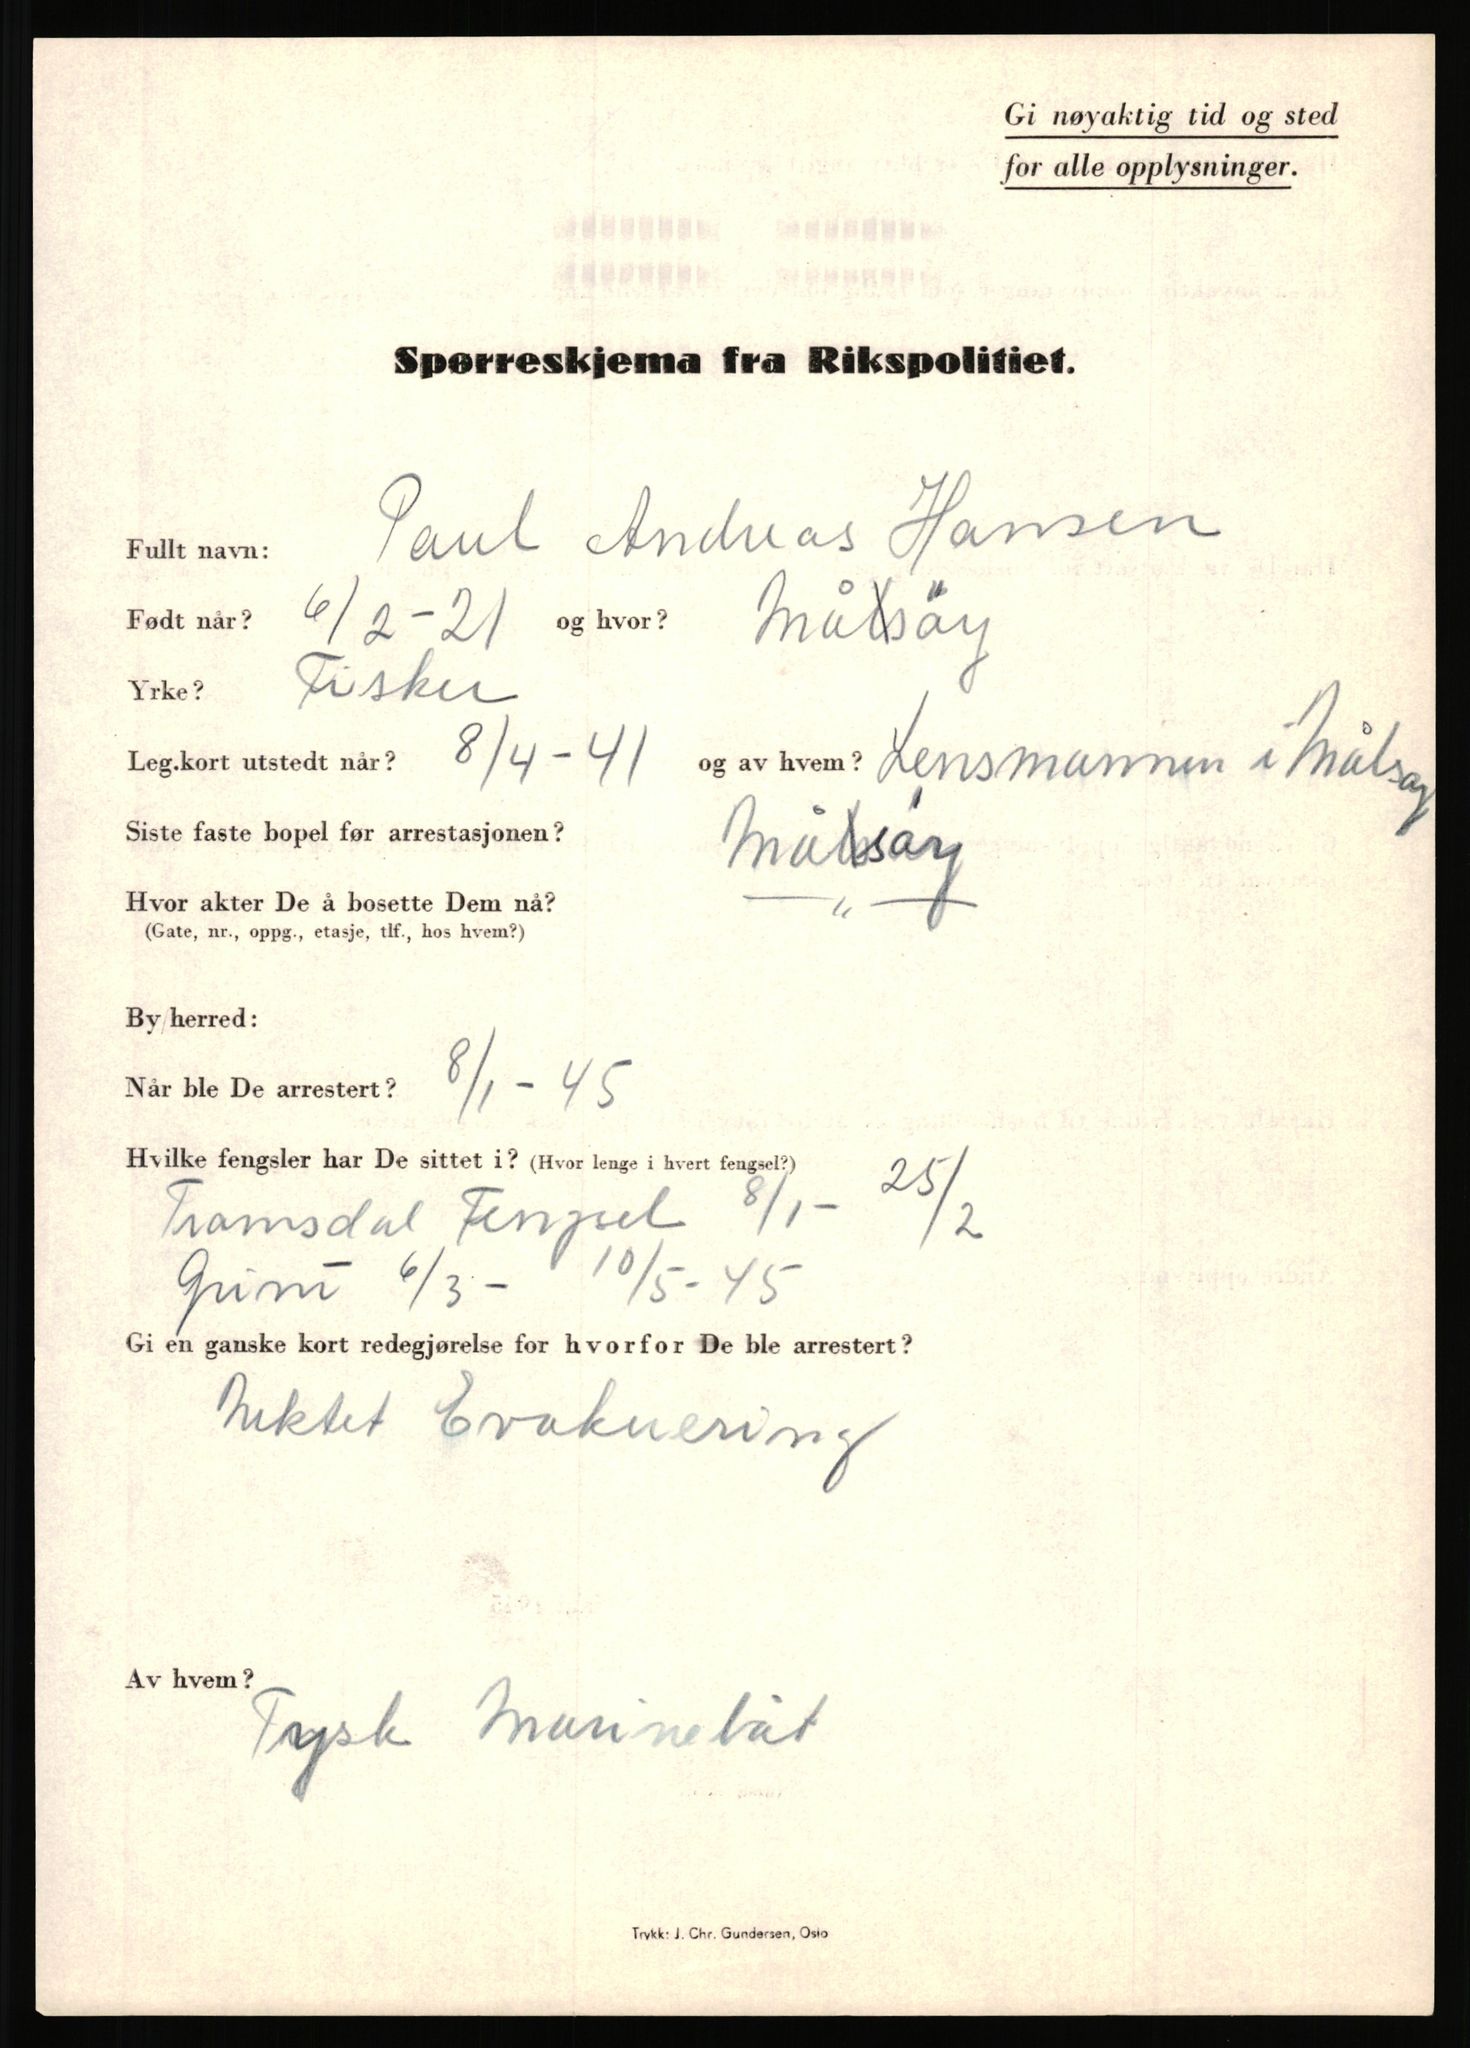 Gi nøyaktig tid og sted
for alle opplysninger.
Spørreskjema fra Rikspolitiet.
Fullt navn: Paul Andreas Hansen
Født når? 6/2-21 og hvor? Målsöy
Yrke? Fisker
Leg.kort utstedt når? 8/4-41 og av hvem? Lensmannen i Målsøy
Siste faste bopel før arrestasjonen? Målsöy
Hvor akter De å bosette Dem nå? — " —
(Gate, nr., oppg., etasje, tlf., hos hvem?)
By/herred:
Når ble De arrestert? 8/1-45
Hvilke fengsler har De sittet i? (Hvor lenge i hvert fengsel?)
Tromsdal Fengsel 8/1- 25/2
Grini 6/3- 10/5-45
Gi en ganske kort redegjørelse for hvorfor De ble arrestert?
Nektet Evakuering
Av hvem?
Tysk Marinebåt
Trykk: J. Chr. Gundersen, Oslo